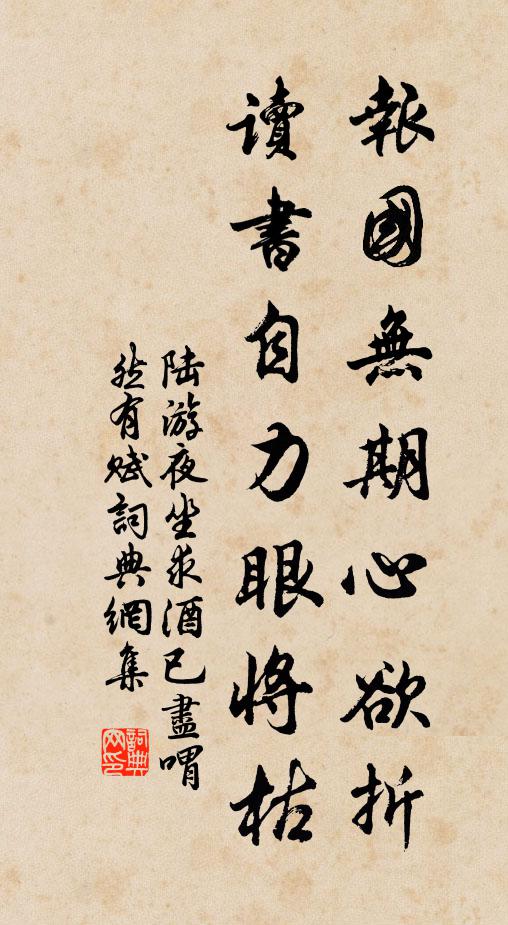 報國無期心欲折
讀書自力眼將枯
陆游夜坐求酒已盡喟
然有赋詞典網集
詞典
网印